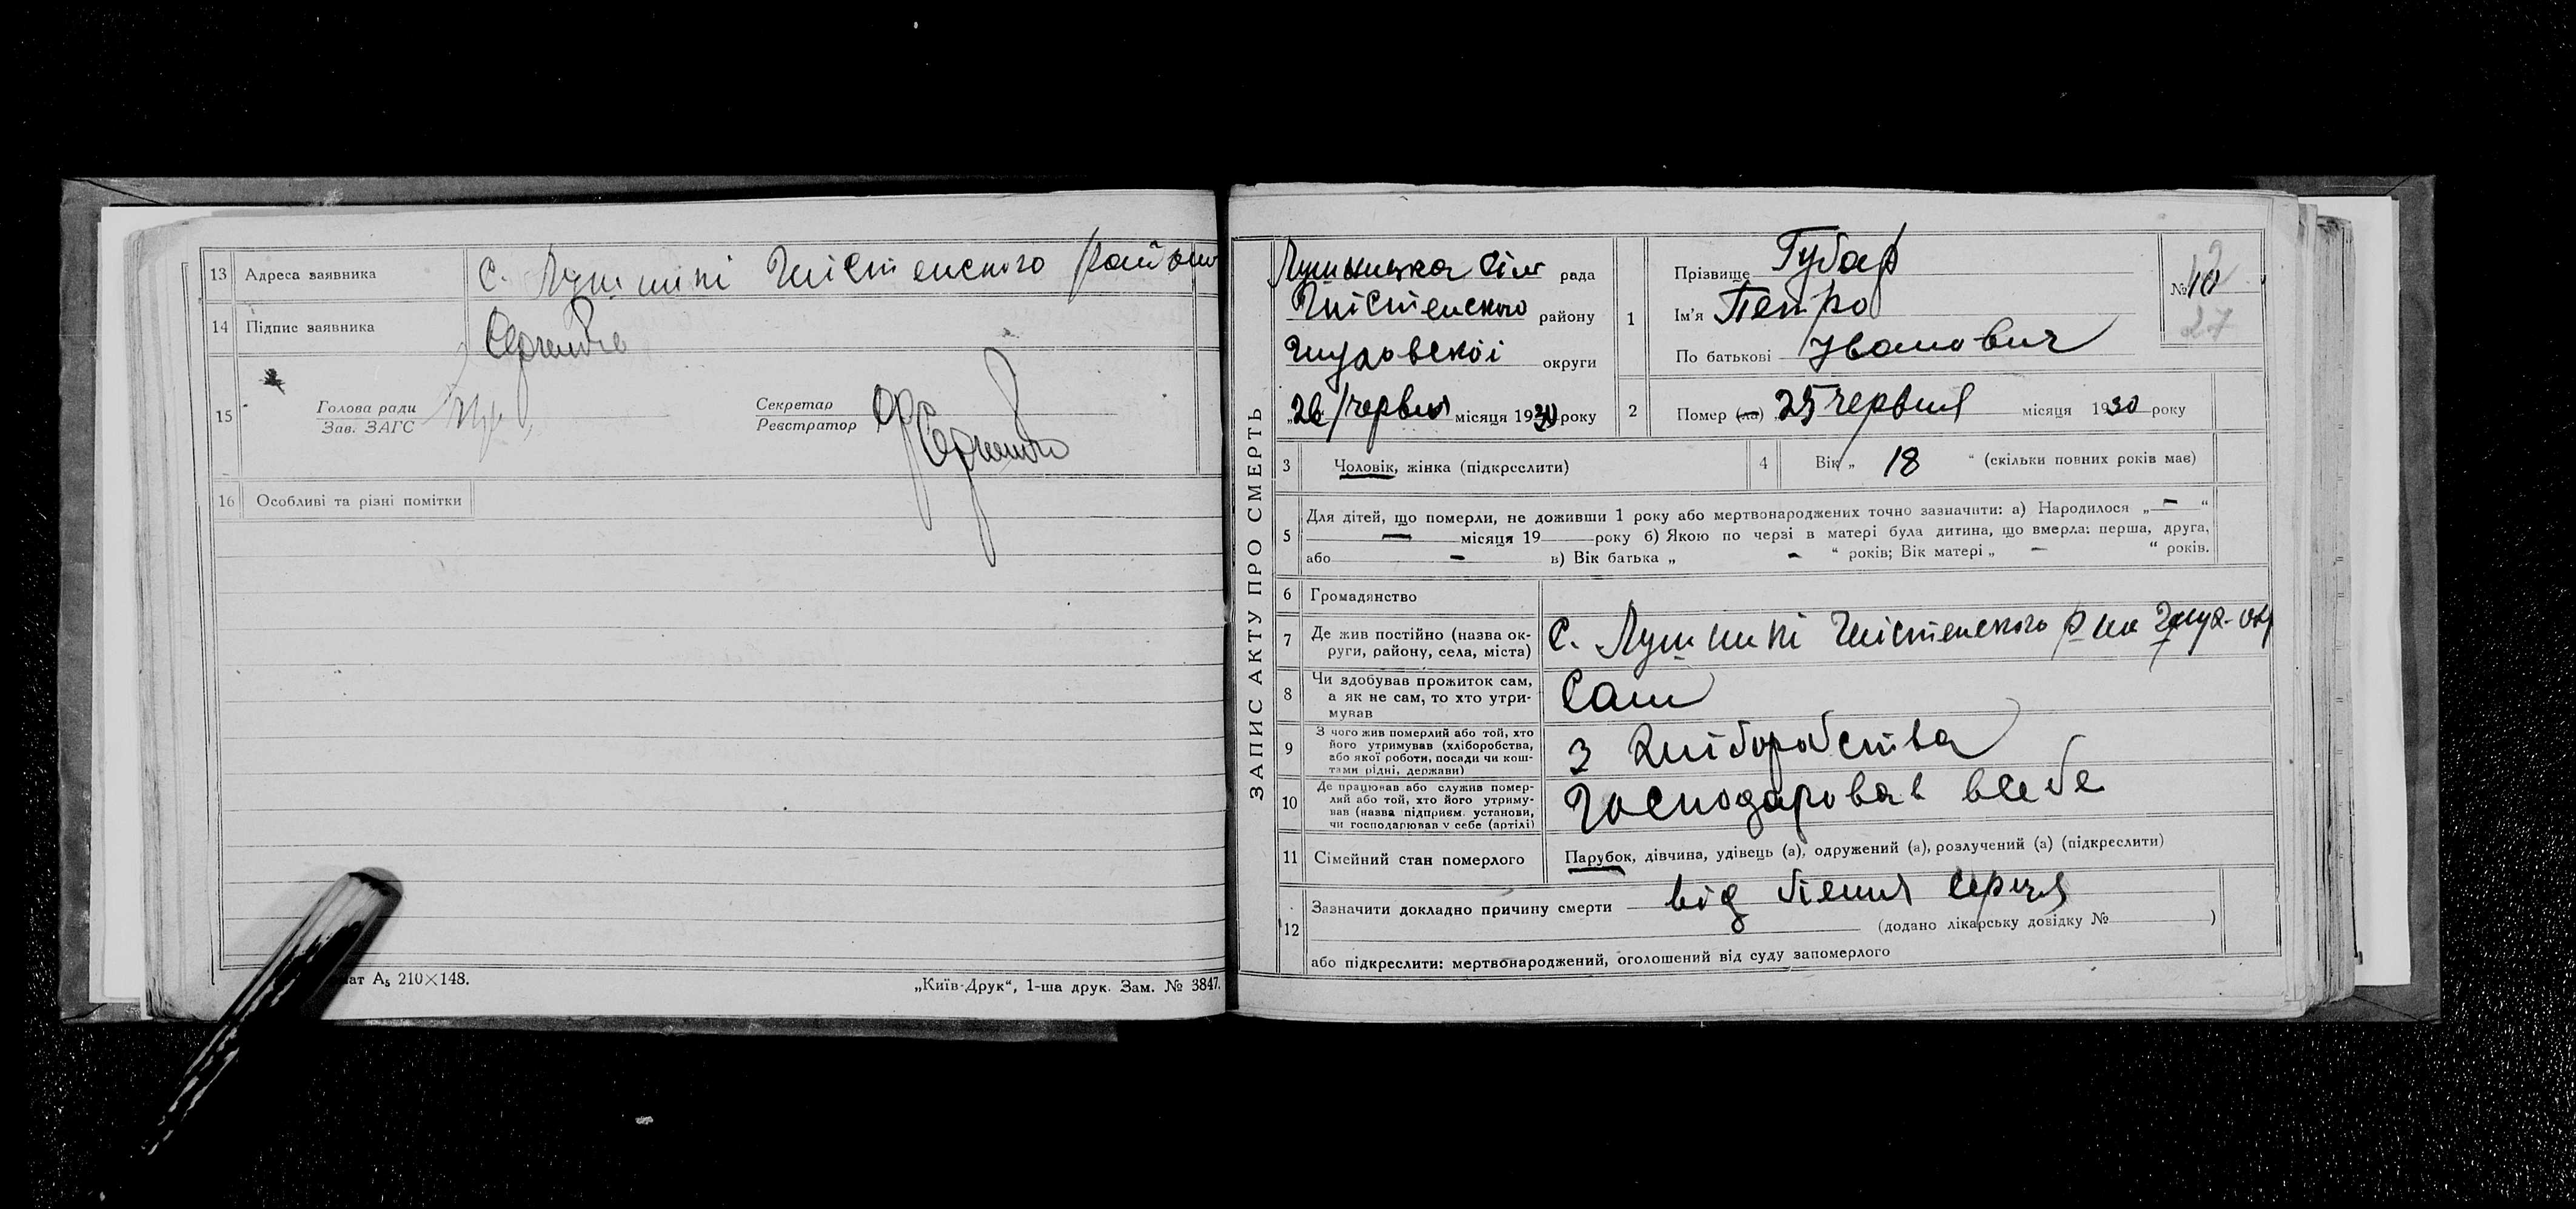 13 Адреса заявника с. Лушники Шістенского район
14 Підпис заявника
15 Голова ради
Зав. ЗАГС
Секретар
Реєстратор
16 Особливі та різні помітки
мат А₅ 210×148.
„Київ-Друк“, 1-ша друк. Зам. № 3847.
ЗАПИС АКТУ ПРО СМЕРТЬ
рада
району
округи
„26“ червня місяця 1930 року
1 Прізвище Губар
Ім'я Петро
По батькові Іванович
№
27
2 Помер (ла) „25 червня місяця 1930 року
3 Чоловік, жінка (підкреслити)
4 Вік „ 18 “ (скільки повних років має)
5 Для дітей, що померли, не доживши 1 року або мертвонароджених точно зазначити: а) Народилося „ — “
— місяця 19 року б) Якою по черзі в матері була дитина, що вмерла: перша, друга,
або — в) Вік батька „ - “ років; Вік матері „ — “ років.
6 Громадянство
7 Де жив постійно (назва ок-
руги, району, села, міста)
8 Чи здобував прожиток сам,
а як не сам, то хто утри-
мував
Сам
9 З чого жив померлий або той, хто
його утримував (хліборобства,
або якої роботи, посади чи кош-
тами рідні, держави)
З хліборобства
10 Де працював або служив помер-
лий або той, хто його утриму-
вав (назва підприєм. установи,
чи господарював у себе (артілі)
Господаровав всебе
11 Сімейний стан померлого Парубок, дівчина, удівець (а), одружений (а), розлучений (а) (підкреслити)
12 Зазначити докладно причину смерти від бієния серця
(додано лікарську довідку № )
або підкреслити: мертвонароджений, оголошений від суду запомерлого